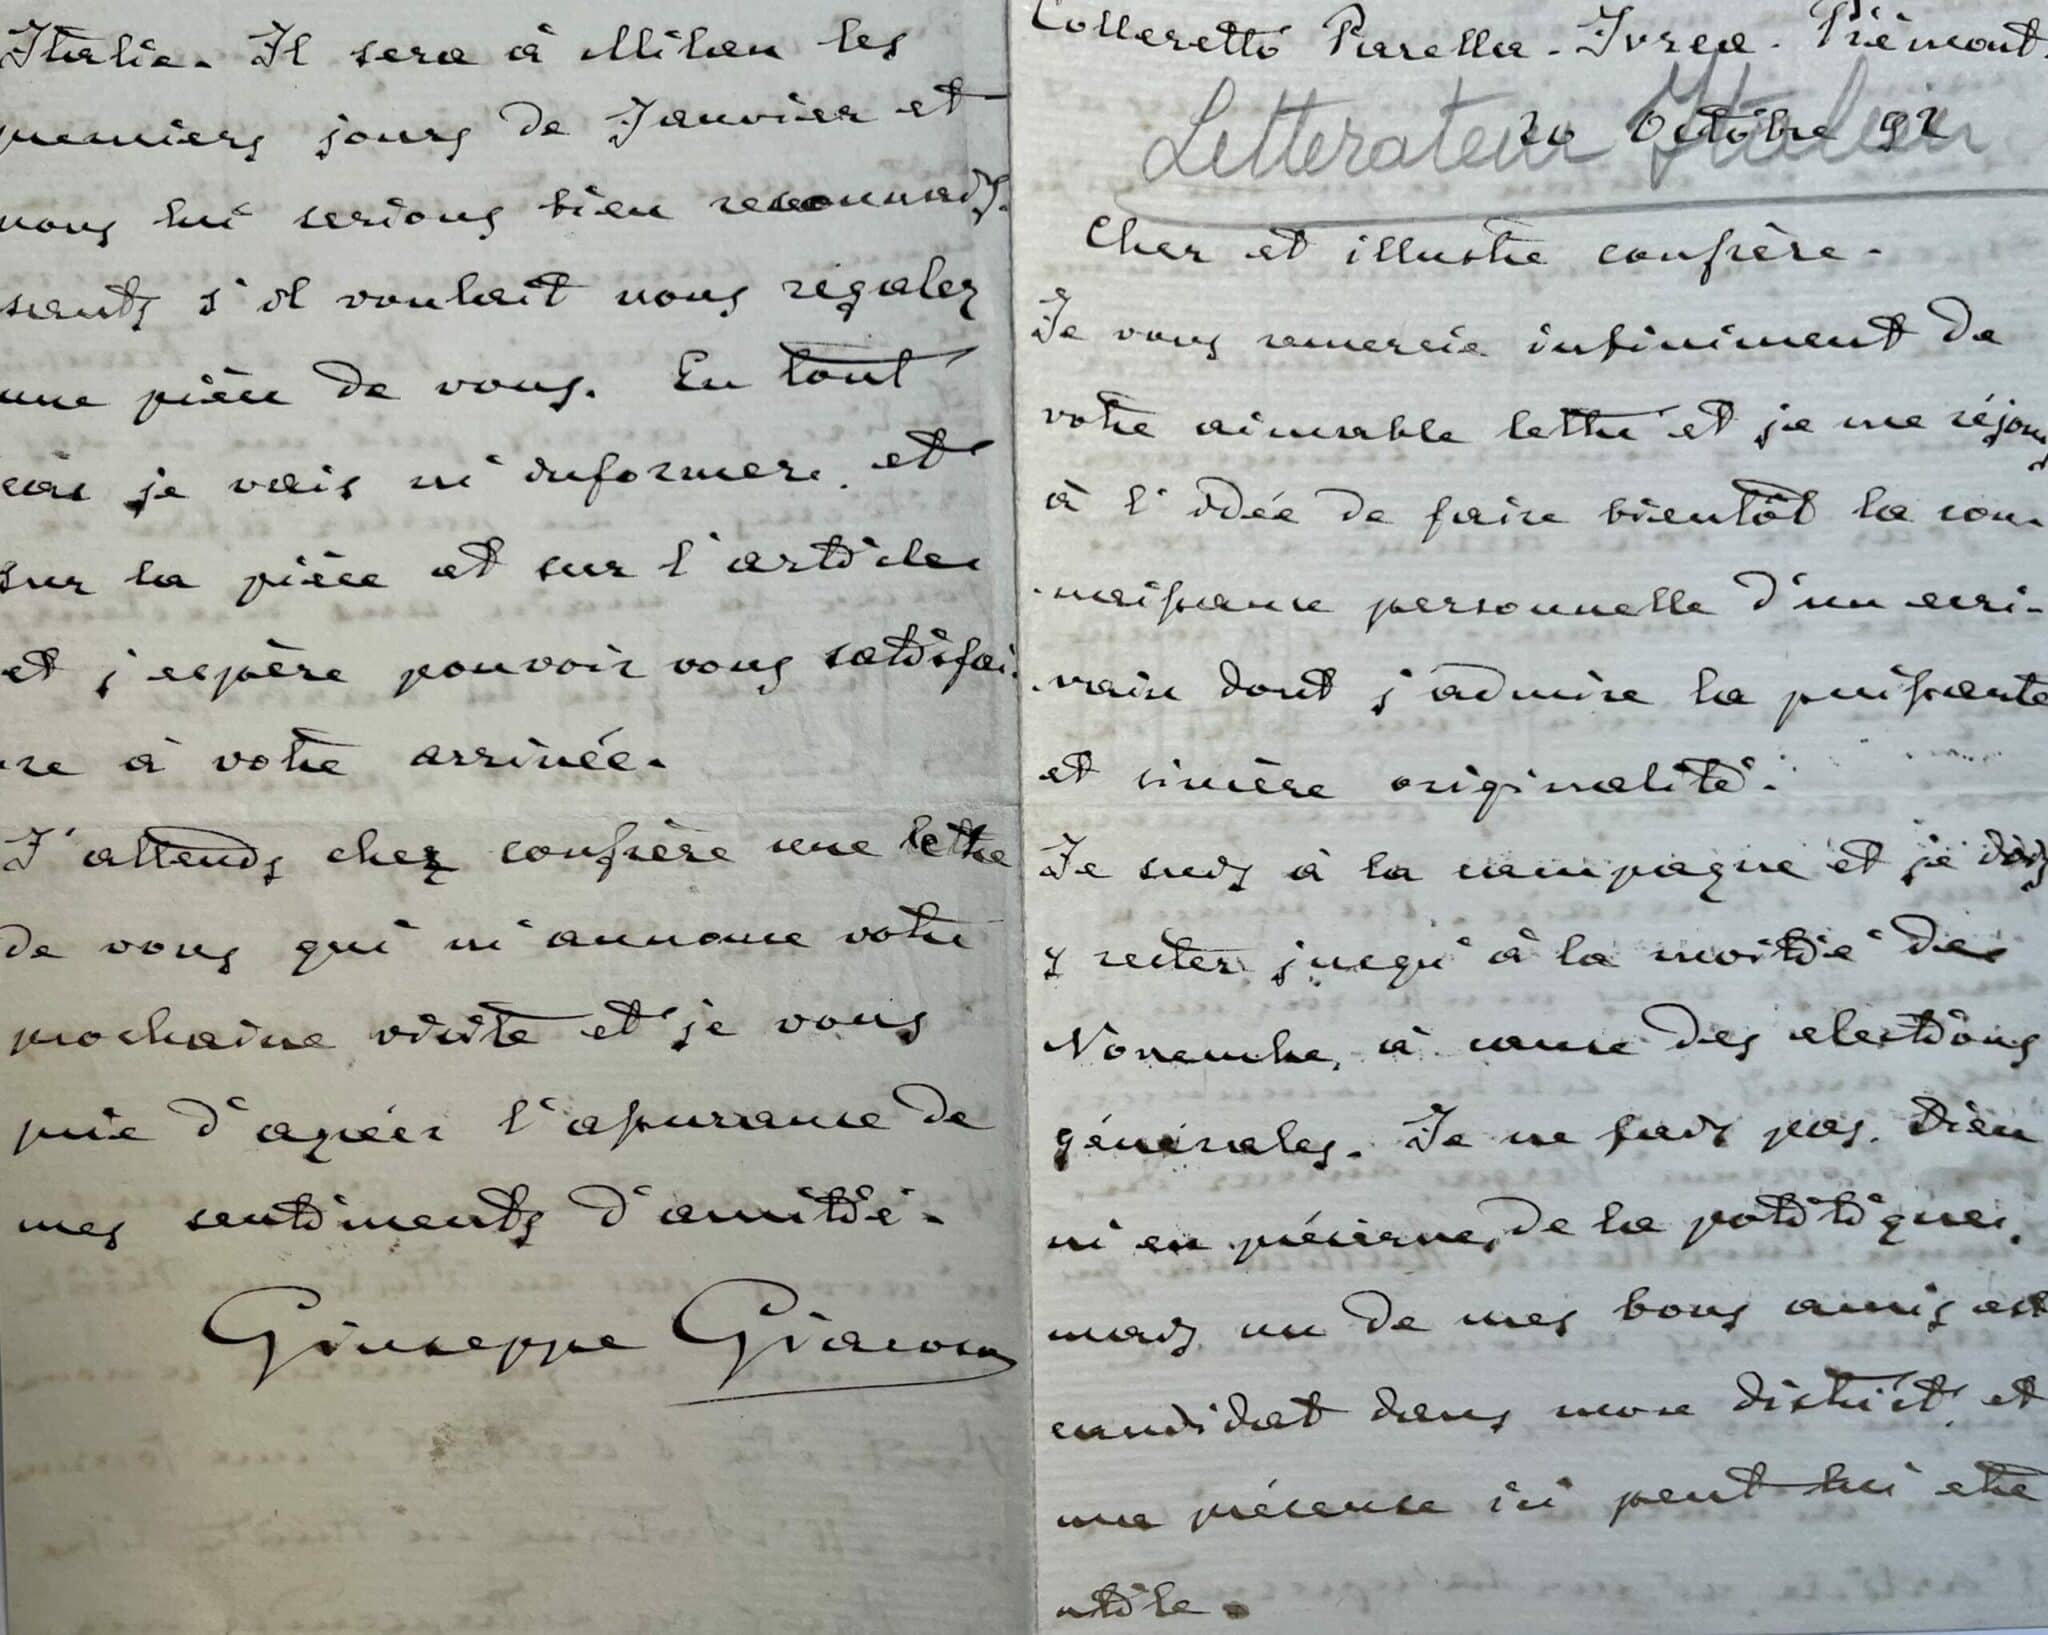 Colleretto Parella - Ivrea - Piémont.
20 Octobre 92
Letterateur Italien
Cher et illustre confrère -
Je vous remercie infiniment de
votre aimable lettre et je me réjouis
à l'idée de faire bientôt la con-
-naissance personnelle d'un ecri-
-vain dont j'admire la puissante
et sincère originalité.
Je suis à la campagne et je dois
y rester jusqu'à la moitié de
Novembre, à cause des elections
générales. Je ne fais pas, Dieu
m'en préserve, de la politique,
mais un de mes bons amis est
candidat dans mon district, et
ma présence ici peut lui etre
utile.
Italie. Il sera à Milan les
premiers jours de Janvier et
nous lui serions bien reconnais-
sants s'il voulait nous régaler
une pièce de vous. En tout
cas je vais m'informer et
sur la pièce et sur l'article
et j'espère pouvoir vous satisfai-
-re à votre arrivée.
J'attends cher confrère une lettre
de vous qui m'annonce votre
prochaine visite et je vous
prie d'agréer l'assurance de
mes sentiments d'amitié.
Giuseppe Giacosa